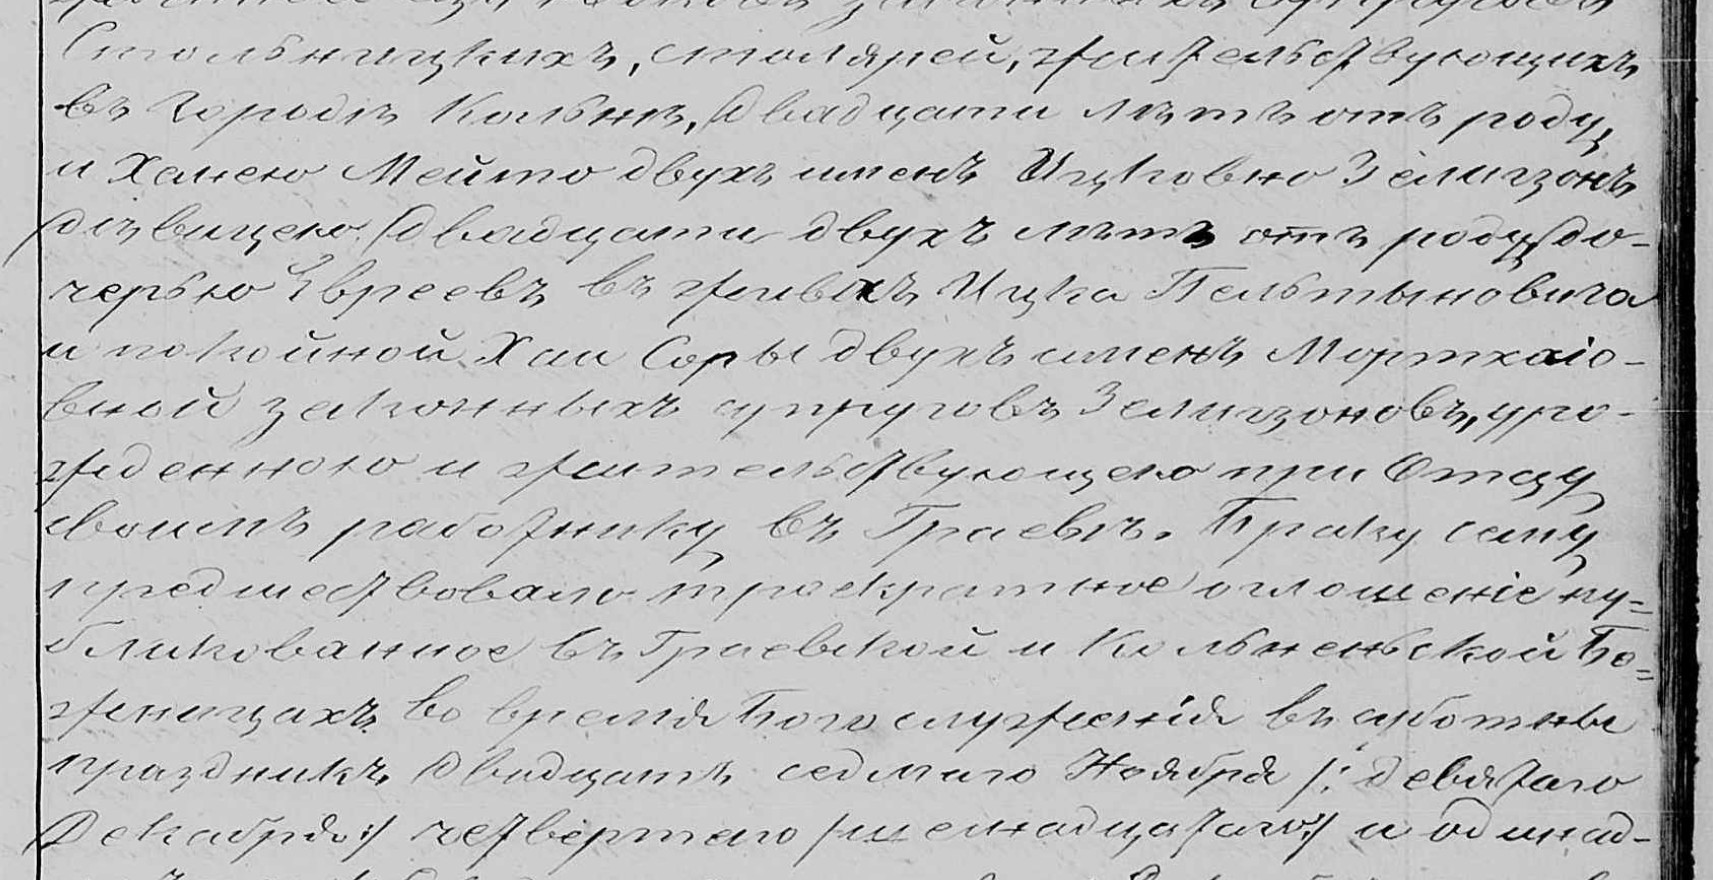 Стольницкихъ, столярей, жительствующихъ
въ городѣ Кольнѣ, двадцати лѣтъ отъ роду,
и Ханею Мейтою двухъ именъ Ицковно Зелигзонъ
дѣвицею двадцати двухъ лѣтъ отъ роду, до-
черью Евреевъ въ живыхъ Ицка Пельтыновича
и покойной Хаи Соры двухъ именъ Мортхаіо-
вной законныхъ супруговъ Зелигзоновъ, уро-
жденною и жительствующею при Отцу
своимъ работнику въ Граевѣ. Браку сему
предшествовало троекратное оглошеніе пу-
бликованное въ Граевской и Кольненьской Бо-
жницахъ во время Богослуженія въ суботны
праздникъ двадцать седмаго Ноября /: девятаго
Декабря :/ четвертаго /шеснадцатаго:/ и одинад-